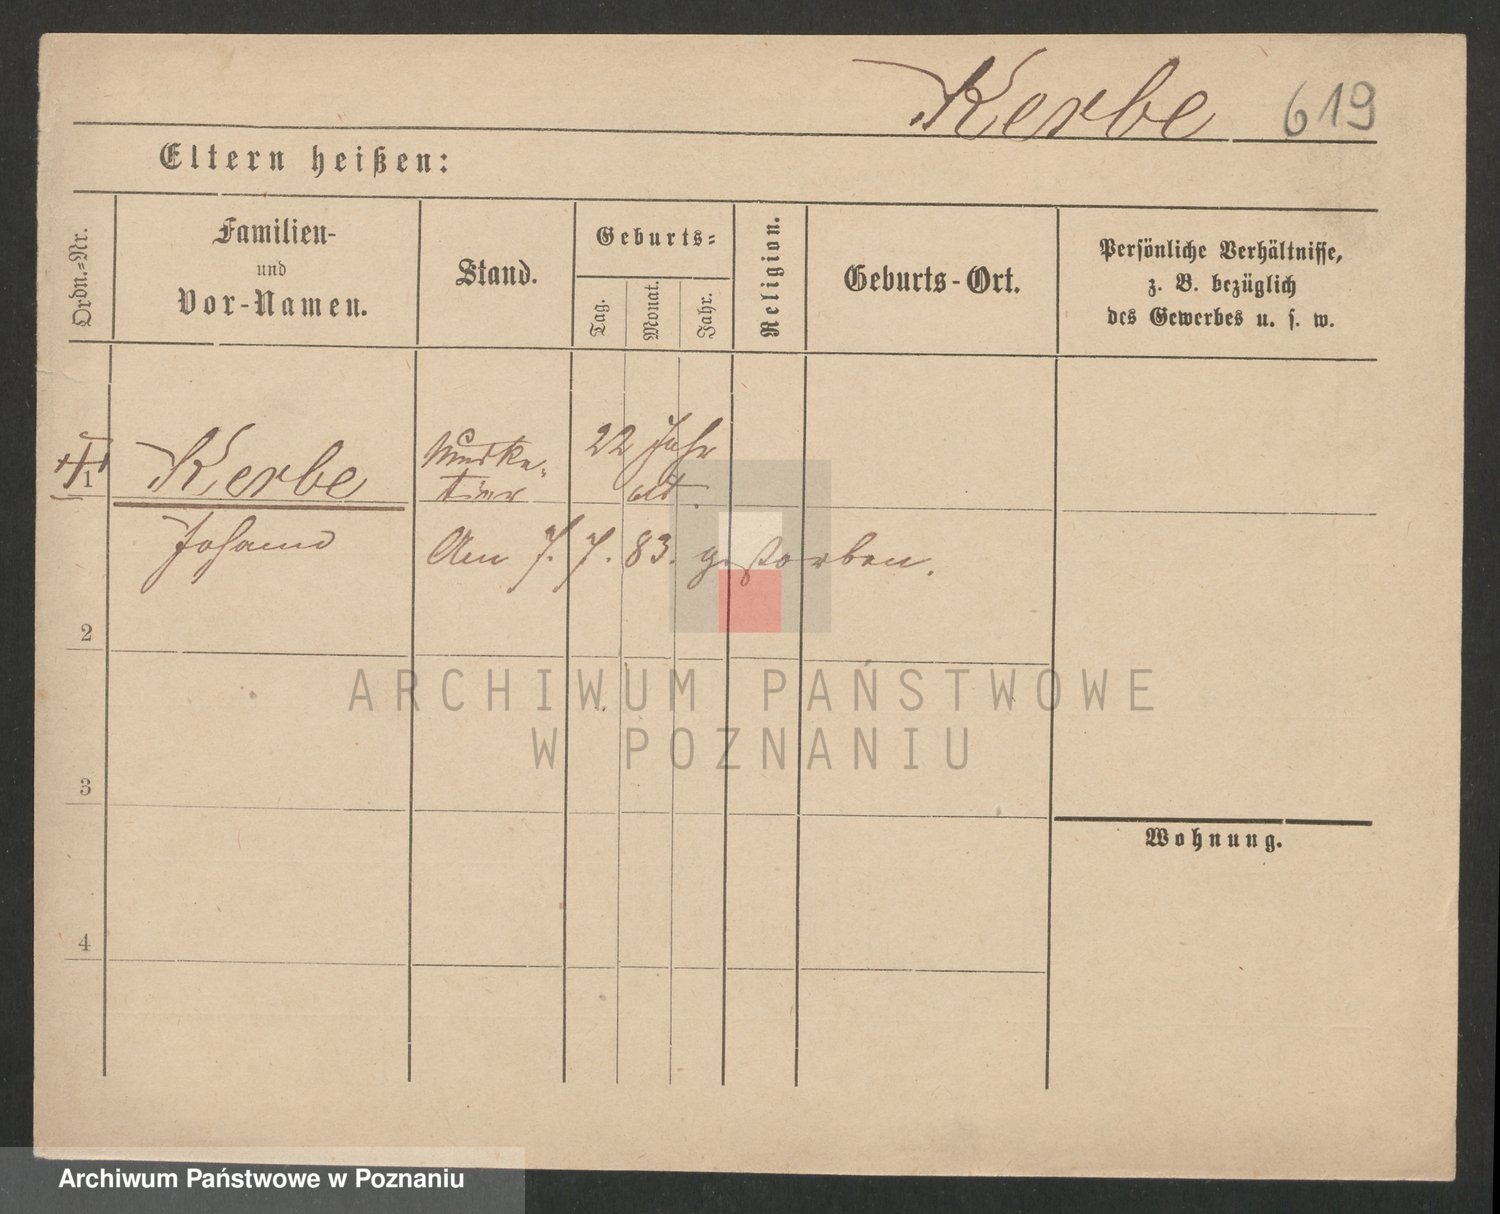 Kerbe 619
Eltern heißen:
Ordn.=Nr.
Familien-
und
Vor-Namen.
Stand.
Geburts=
Tag.
Monat.
Jahr.
Religion.
Geburts-Ort.
Persönliche Verhältnisse,
z. B. bezüglich
des Gewerbes u. s. w.
1
Kerbe
Johann
Muske-
tier
22 Jahr
alt.
Am 7. 7. 83. gestorben.
2
3
4
Wohnung.
ARCHIWUM PAŃSTWOWE
W POZNANIU
Archiwum Państwowe w Poznaniu